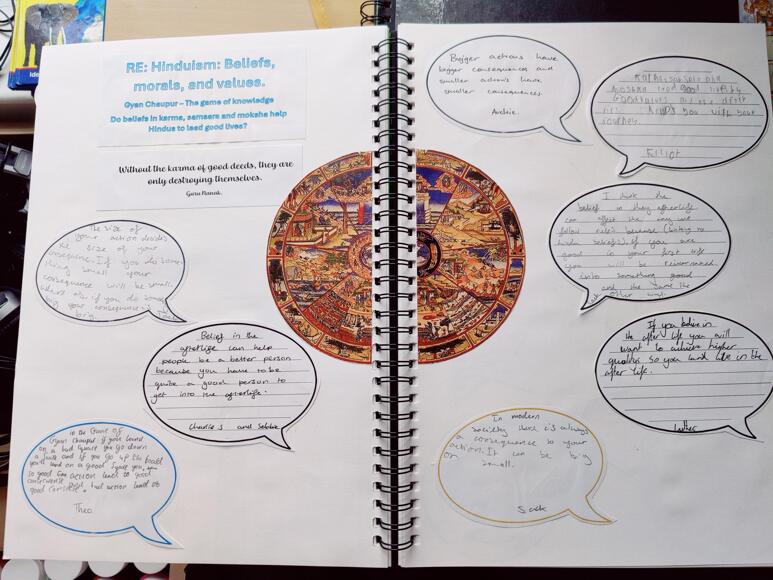 RE: Hinduism: Beliefs,
morals, and values.
Gyan Chaupur – The game of knowledge
Do beliefs in karma, samsara and moksha help
Hindus to lead good lives?
Without the karma of good deeds, they are
only destroying themselves.
Guru Nanak.
The size of
your action decides
the size of your
consequence. If you do some
thing small your
consequence will be small
where as if you do some
big your consequence
big.
Belief in the
afterlife can help
people be a better person
because you have to be
quite a good person to
get into the afterlife.
Charlie S and Sebbie
In the Game of
Gyan Chaupur if you land
on a bad square you go down
a snake and if you go up the board
you'll land on a good square
so good action lead to good
bad action lead to
Theo
Bigger actions have
bigger consequences and
smaller actions have
smaller consequences.
lead good life by
you will have
journey.
Elliot
I think the
belief in they afterlife
can affect the way we
follow rules because
hindu beliefs) if you are
good in your first life
you will be
into something good
and the same the
other way.
If you believe in
the after life you will
want to achieve higher
qualities so you land in the
after life.
In modern
Society there is always
a consequence to your
action. It can be big
or small.